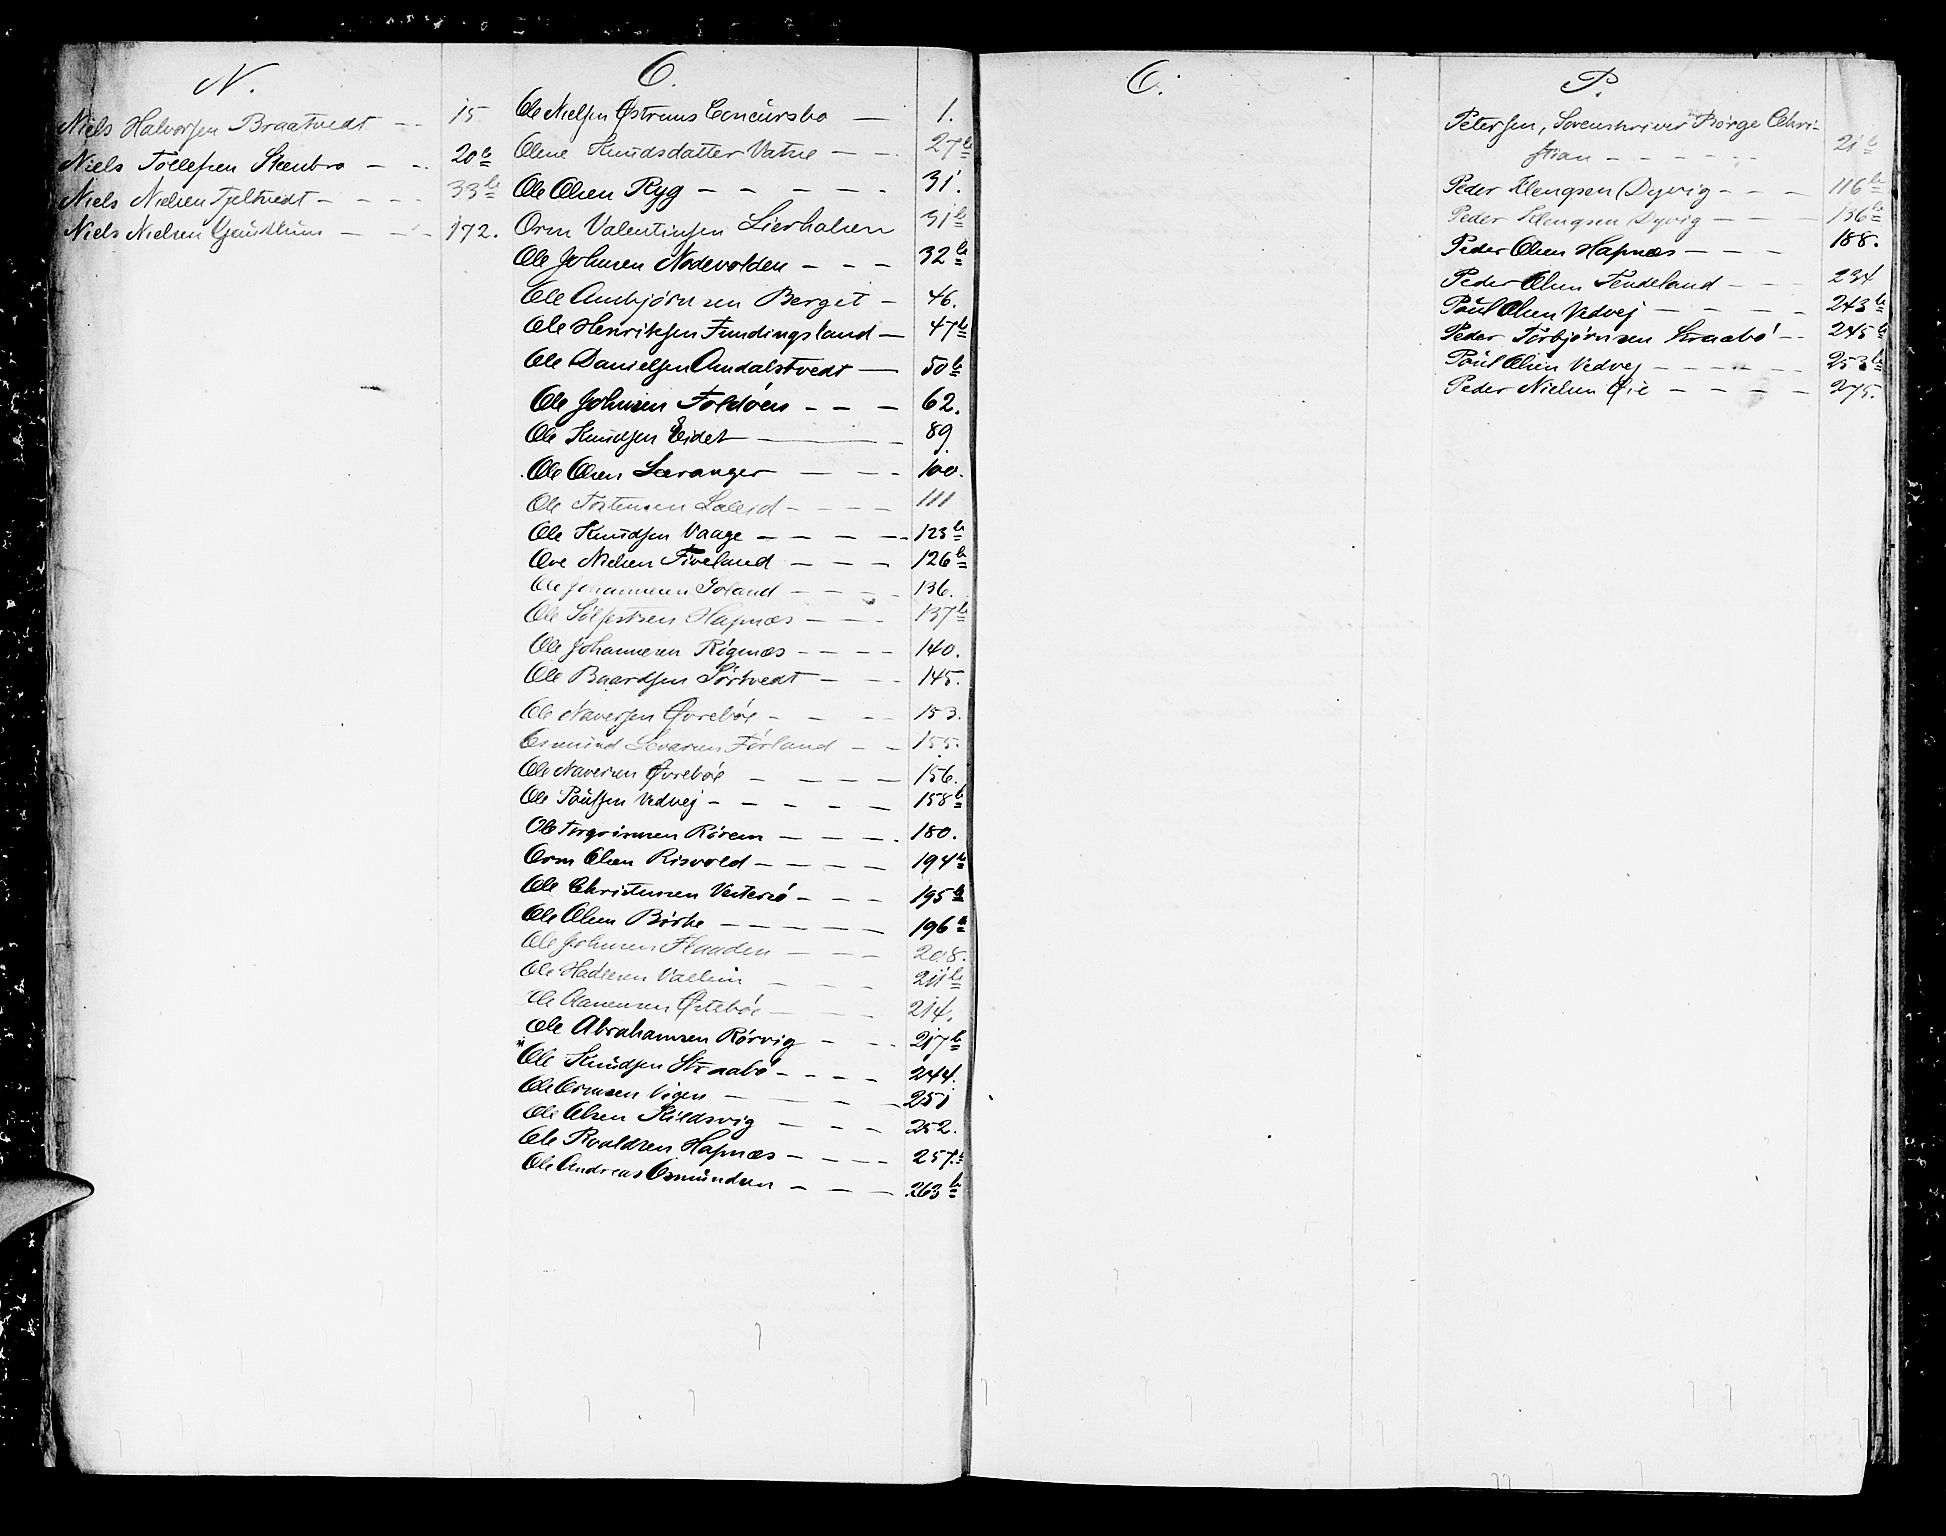 N.
Niels Halvorsen Braatvedt - - 15
Niels Tollefsen Steenbro - - 20 b
Niels Nielsen Tjeltvedt - - - - 33 b
Niels Nielsen - - - 172.
O.
Ole Nielsen Østrems Concursbo — 1.
Olene Knudsdatter Vatne - - 27 b
Ole Olsen Ryg - - - - - 31.
Orm Valentinsen Lierhalsen 31 b
Ole Johnsen Nodevolden - - - 32 b
Ole Ambjørnsen Berget - 46.
Ole Henriksen Fundingsland - 47 b
Ole Danielsen Amdalstvedt — 50 b
Ole Johnsen Foldøen - - - 62.
Ole Knudsen Eidet - 89
Ole Olsen Særanger - - - 100.
Ole Tostensen Laleid - - - - 111
Ole Knudsen Vaage - - - - - 123 b
Ove Nielsen Fiveland - - - 126 b
Ole Johannesen - - - - 136.
Ole Sølfestsen Hapnæs - - - 137 b
Ole Johannesen Røgnæs - - - - 140.
Ole Baardsen Sørtvedt - - - 145.
Ole Naversen Øvrebøe - - - - 153.
Osmund Førland - - 155.
Ole Naversen Øvrebøe - - - - 156.
Ole Poulsen Vedvej - - - - - 158 b
Ole Rørem - - - - 180.
Orm Olsen Risvold - - - - 194 b
Ole Christensen Vestersø - - - - 195 b
Ole Olsen Børke - - - - - 196
Ole Johnsen Flaaden - - - 208.
Ole - - - 211 b
Ole Aanensen Østebøe - - - 214.
Ole Abrahamsen Rørvig - - - 217 b
Ole Knudsen Straabø - - - - 244.
Ole Ormsen Vigen - - - - 251
Ole Olsen Kildsvig - - - 252.
Ole Roaldsen Hapnæs - - - - 257.
Ole Andreas Osmundsen - - - 263 b
O.
P.
Petersen, Sorenskriver Børge Chri-
stian - - - - - - 21 b
Peder Klengsen Dyvig - - - 116 b
Peder Klengsen Dyvig - - - 136 b
Peder Olsen Hapnæs - - - 188.
Peder Olsen Tendeland - - - 234
Poul Olsen Vedvej - - - - - 243 b
Peder Torbjørnsen Straabø - - 245 b
Poul Olsen Vedvej - - - - - 253 b
Peder Nielsen Øie - - - - 275.